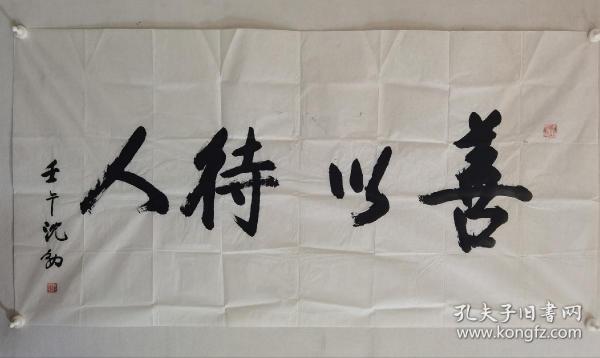 善以待人
壬午沈勃
孔夫子旧书网
www.kongfz.com